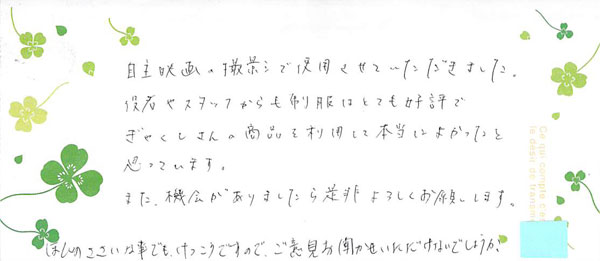 自主映画の撮影シで使用させていただきました。
役者やスタッフからも制服はとても好評で
ぎゃくしさんの商品を利用して本当によかったと
思っています。
また、機会がありましたら是非よろしくお願します。
ほんのささいな事でも、けっこうですので、ご意見お聞かせいただけないでしょうか?
Ce qui compte c'es
le désir de transme